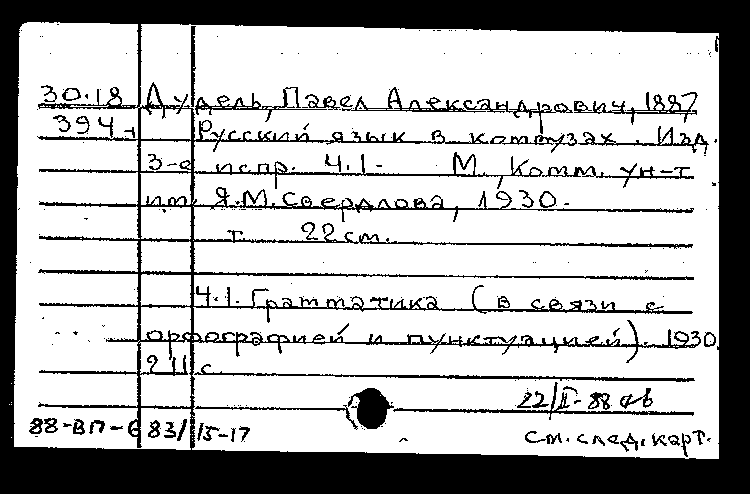 30.18 Дудель, Павел Александрович, 1887
394 Русский язык в комвузах. Изд.
3-е испр. Ч.1- М., Комм. ун-т
им. Я.М.Свердлова, 1930.
т. 22 см.
Ч.1. Грамматика (в связи с
орфографией и пунктуацией). 1930.
211 с
22/II-88
88-ВП-6 83/15-17 см. след. карт.